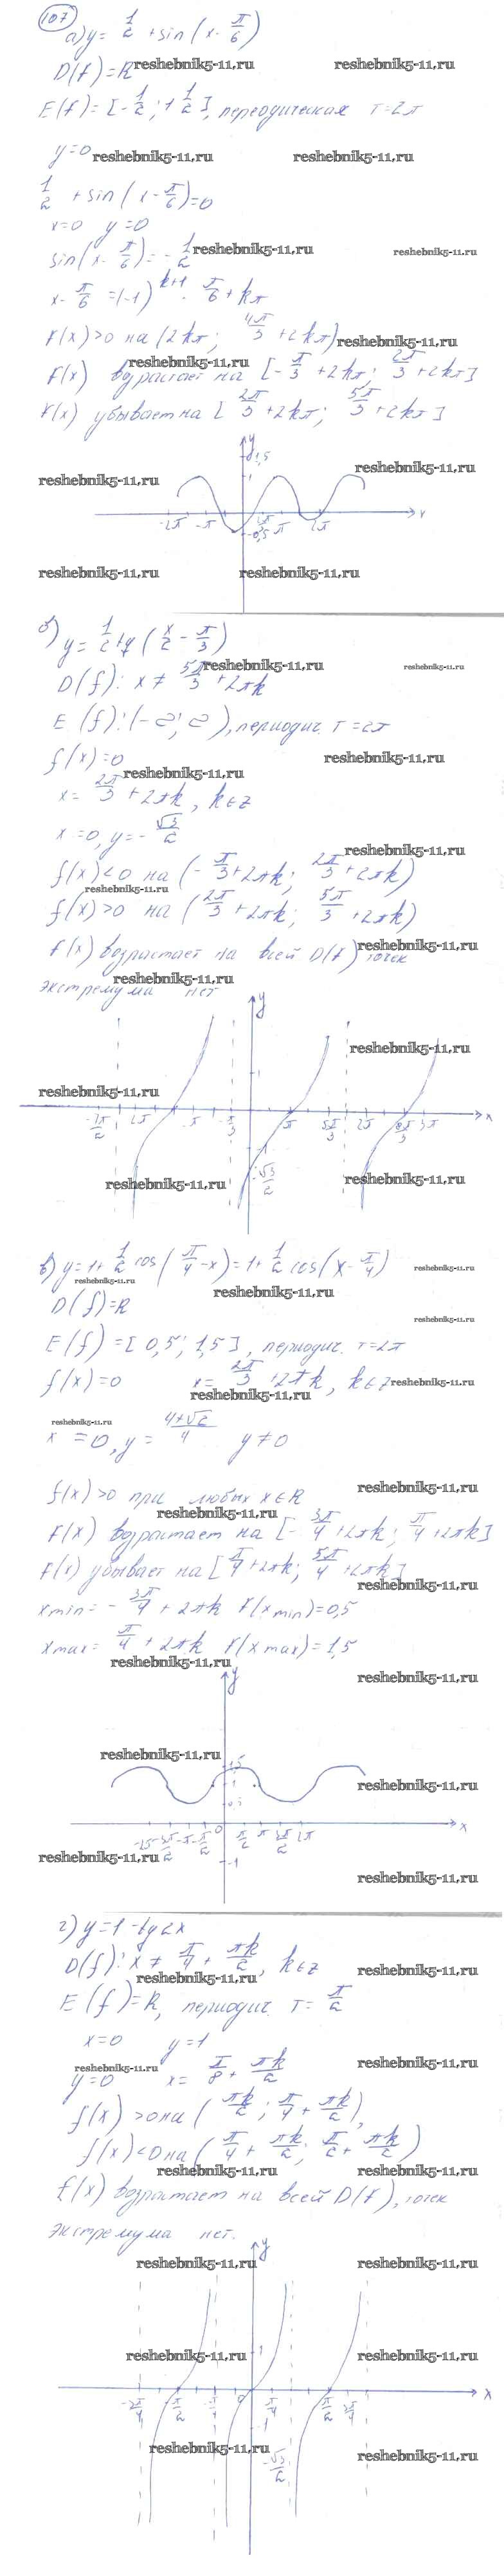 107
а) y = 1/2 + sin(x - π/6)
D(f) = R
reshebnik5-11,ru
reshebnik5-11,ru
E(f) = [-1/2; 1 1/2], переодическая T = 2π
y=0
reshebnik5-11,ru
reshebnik5-11,ru
1/2 + sin(x - π/6) = 0
x=0 y=0
sin(x - π/6) = -1/2
reshebnik5-11,ru
reshebnik5-11.ru
x - π/6 = (-1)^k+1 · π/6 + kπ
f(x) > 0 на (2kπ; 4π/3 + 2kπ)
reshebnik5-11,ru
reshebnik5-11,ru
f(x) возрастает на [-π/3 + 2kπ; 2π/3 + 2kπ]
f(x) убывает на [2π/3 + 2kπ; 5π/3 + 2kπ]
y
1,5
reshebnik5-11,ru
1
reshebnik5-11,ru
-2π -π π 2π x
-0,5
reshebnik5-11,ru
reshebnik5-11,ru
б) y = 1/2 tg(x/2 - π/3)
reshebnik5-11,ru
reshebnik5-11.ru
D(f): x ≠ 5π/3 + 2πk
E(f): (-∞; ∞), периодич. T = 2π
f(x) = 0
reshebnik5-11,ru
reshebnik5-11,ru
x = 2π/3 + 2πk, k∈z
x = 0, y = -√3/2
reshebnik5-11,ru
f(x) < 0 на (-π/3 + 2πk; 2π/3 + 2πk)
reshebnik5-11.ru
f(x) > 0 на (2π/3 + 2πk; 5π/3 + 2πk)
f(x) возрастает на всей D(f), точек
reshebnik5-11,ru
reshebnik5-11,ru
экстремума нет
y
reshebnik5-11,ru
1
reshebnik5-11,ru
-7π/2 2π -π -π/3 π 5π/3 2π 8π/3 3π x
-1
-√3/2
reshebnik5-11,ru
reshebnik5-11,ru
в) y = 1 + 1/2 cos(π/4 - x) = 1 + 1/2 cos(x - π/4)
reshebnik5-11.ru
reshebnik5-11.ru
reshebnik5-11,ru
D(f) = R
reshebnik5-11.ru
E(f) = [0,5; 1,5], периодич. T = 2π
f(x) = 0 x = 2π/3 + 2πk, k∈z
reshebnik5-11.ru
reshebnik5-11,ru
reshebnik5-11.ru
x = 0, y = 4+√2/4 y ≠ 0
f(x) > 0 при любых x∈R
reshebnik5-11,ru
reshebnik5-11,ru
f(x) возрастает на [-3π/4 + 2πk; π/4 + 2πk]
f(x) убывает на [π/4 + 2πk; 5π/4 + 2πk]
reshebnik5-11,ru
xmin = -3π/4 + 2πk f(xmin) = 0,5
xmax = π/4 + 2πk f(xmax) = 1,5
reshebnik5-11,ru
y
reshebnik5-11,ru
reshebnik5-11,ru
1,5
1
reshebnik5-11,ru
0,5
0
-3π/2 -π -π/2 π/2 π 3π/2 2π x
reshebnik5-11,ru
-1
reshebnik5-11,ru
г) y = 1 - tg 2x
D(f): x ≠ π/4 + πk/2, k∈z
reshebnik5-11,ru
reshebnik5-11,ru
E(f) = R, периодич. T = π/2
x=0 y=1
reshebnik5-11.ru
reshebnik5-11,ru
y=0 x = π/8 + πk/2
f(x) > 0 на (πk/2; π/4 + πk/2),
reshebnik5-11,ru
f(x) < 0 на (π/4 + πk/2; π/2 + πk/2)
reshebnik5-11,ru
reshebnik5-11,ru
f(x) возрастает на всей D(f), точек
экстремума нет.
y
reshebnik5-11,ru
reshebnik5-11,ru
reshebnik5-11,ru
reshebnik5-11,ru
1
0
-3π/4 -π/2 -π/4 π/4 π/2 3π/4 x
-1
-√3/2
reshebnik5-11,ru
reshebnik5-11,ru